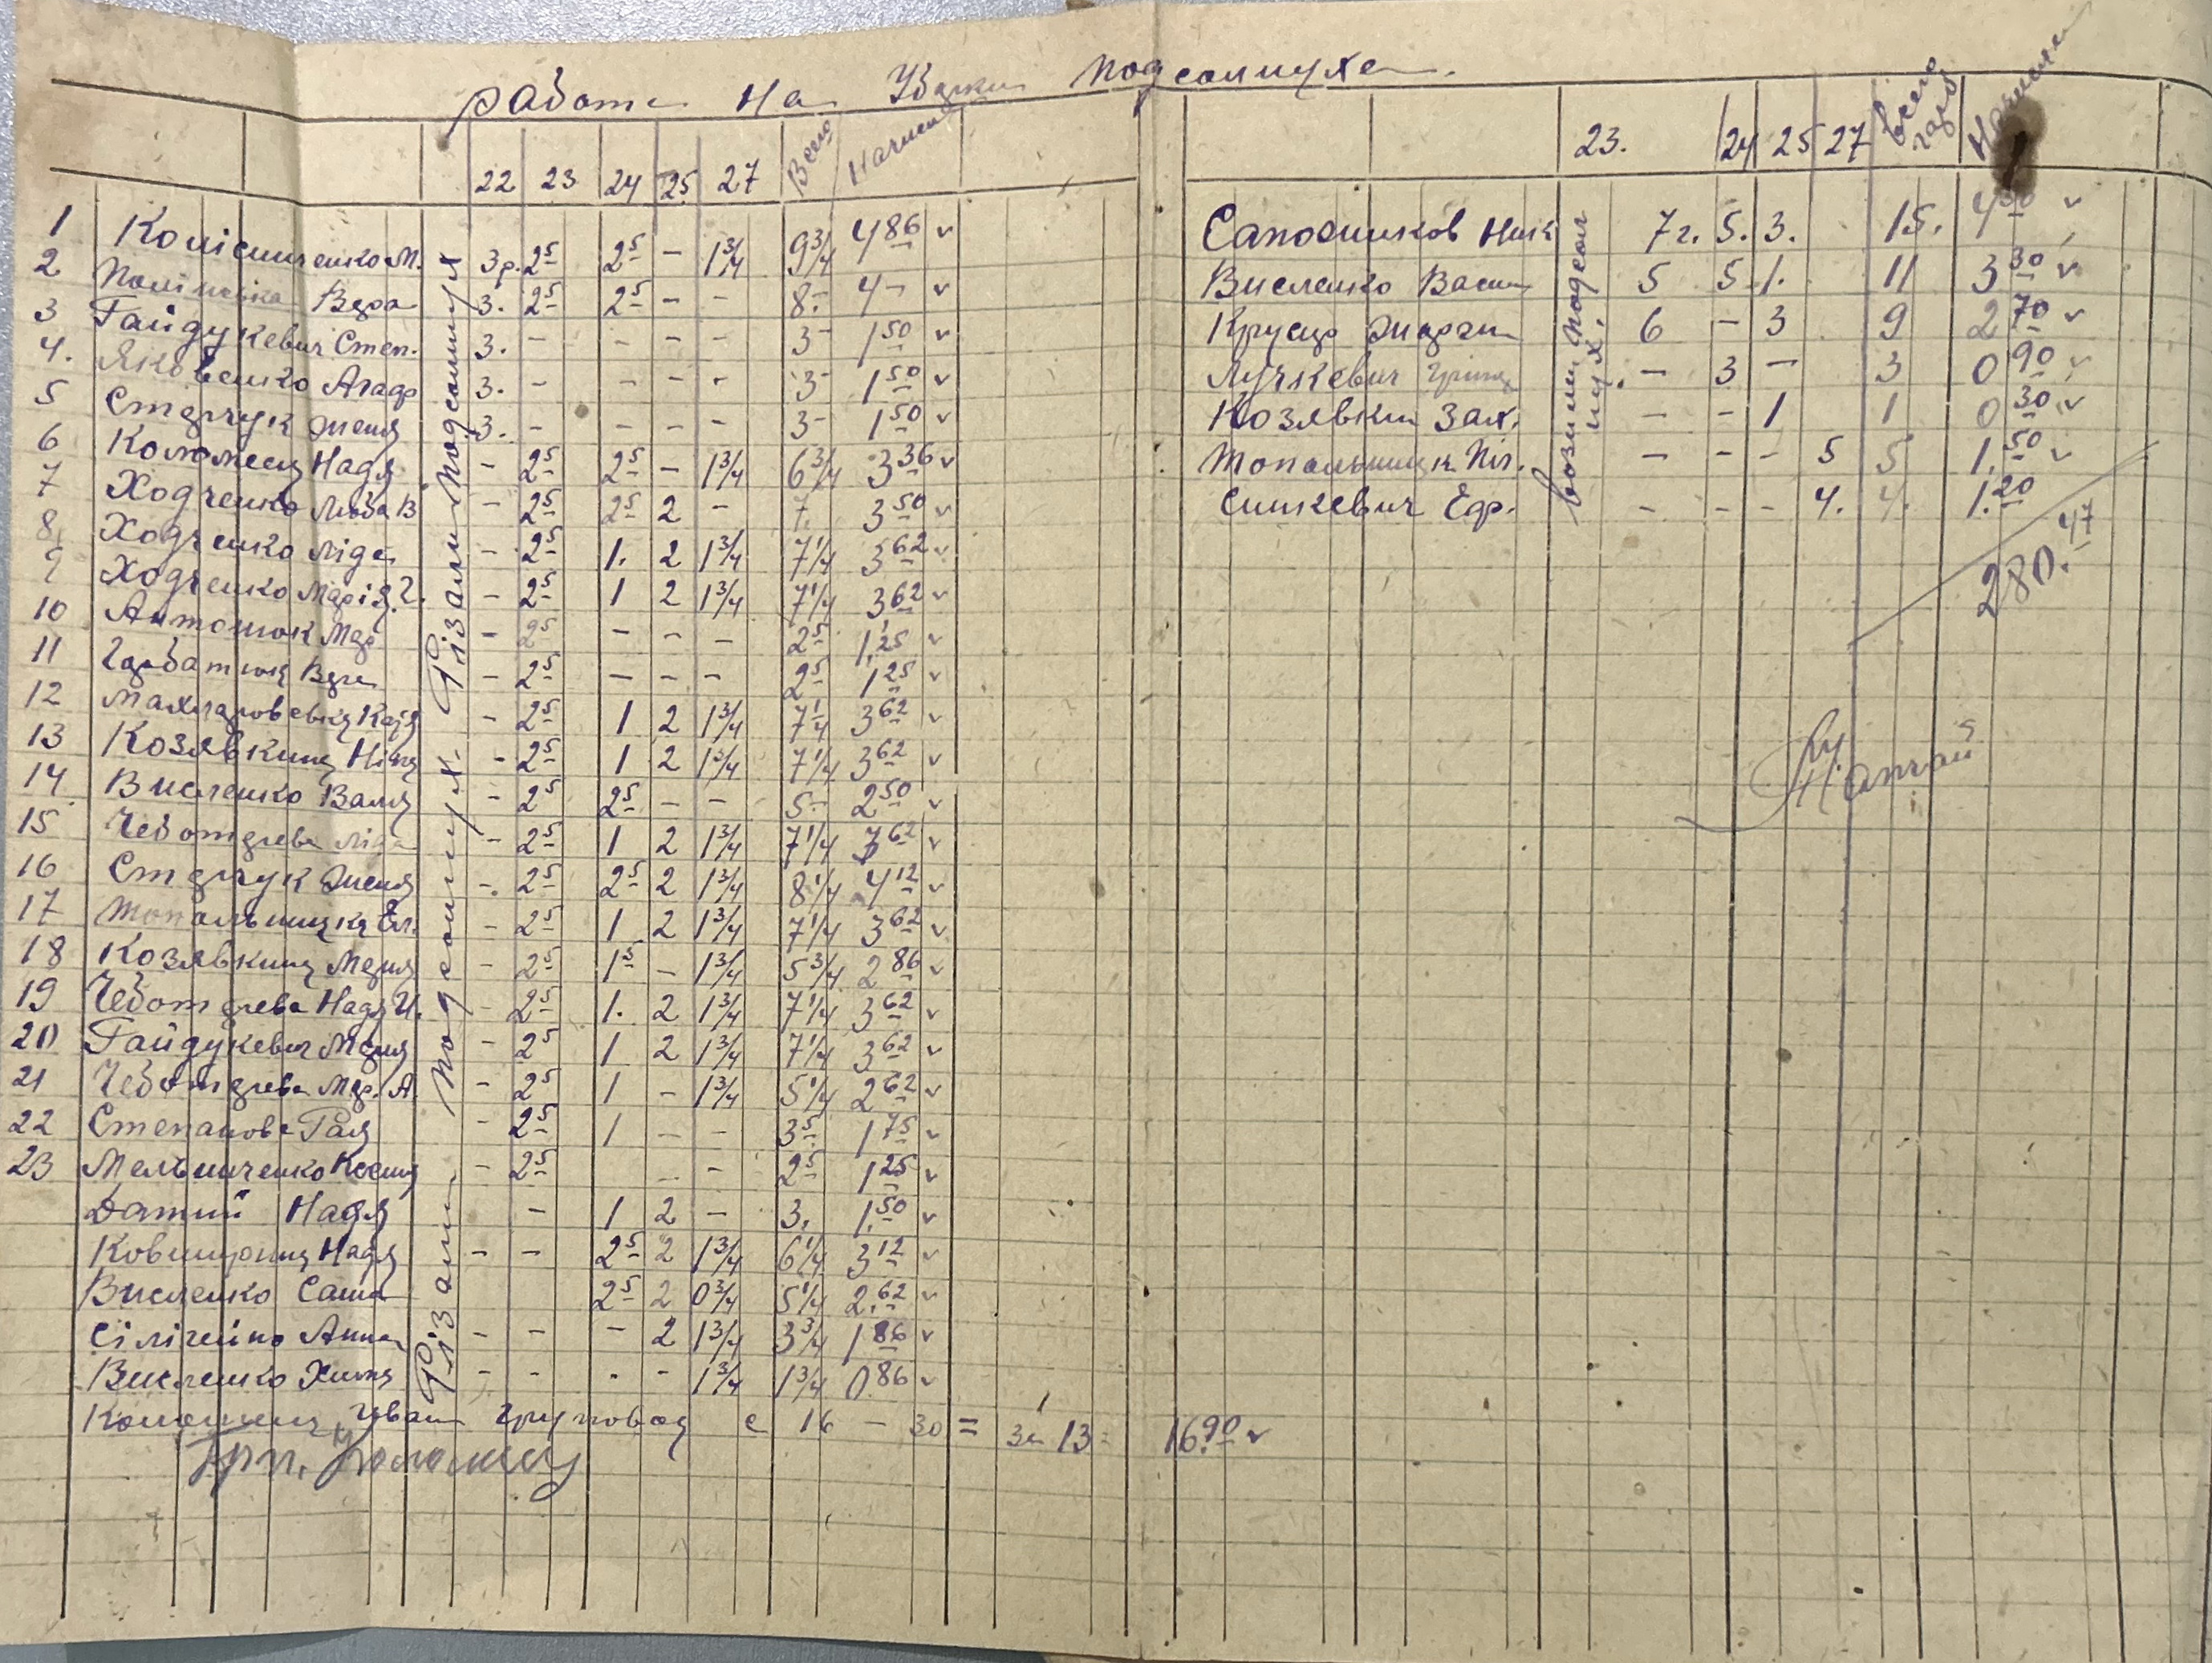 работа на Уборки подсолнуха.
22 23 24 25 27 Всего Начислен
1 Колісниченко М. 3р. 2 5 2 5 - 1 3/4 9 3/4 4 86 v
2 Вера 3. 2 5 2 5 - - 8 - 4 - v
3 Гайдукевич Степ. 3. - - - - 3 - 1 50 v
4. Яковенко Агаф 3. - - - - 3 - 1 50 v
5 Стерчук Женя 3. - - - - 3 - 1 50 v
6 Коломеец Надя - 2 5 2 5 - 1 3/4 6 3/4 3 36 v
7 Ходченко Люба В - 2 5 2 5 2 - 7. 3 50 v
8 Ходченко Ліда - 2 5 1. 2 1 3/4 7 1/4 3 62 v
9 Ходченко Марія Г. - 2 5 1 2 1 3/4 7 1/4 3 62 v
10 Антонюк Мар - 2 5 - - - 2 5 1,25 v
11 Горбатюк Вера - 2 5 - - - 2 5 1 25 v
12 Катя - 2 5 1 2 1 3/4 7 1/4 3 62 v
13 Козявкина Ніна - 2 5 1 2 1 3/4 7 1/4 3 62 v
14 Висленко Валя - 2 5 2 5 - - 5 - 2 50 v
15 Чеботарева Ліда - 2 5 1 2 1 3/4 7 1/4 3 62 v
16 Стерчук Женя - 2 5 2 5 2 1 3/4 8 1/4 4 12 v
17 Топальницка Ел. - 2 5 1 2 1 3/4 7 1/4 3 62 v
18 Козявкина Маруся - 2 5 1 5 - 1 3/4 5 3/4 2 86 v
19 Чеботарева Надя И. - 2 5 1. 2 1 3/4 7 1/4 3 62 v
20 Гайдукевич Маруся - 2 5 1 2 1 3/4 7 1/4 3 62 v
21 Чеботарева Мар. А - 2 5 1 - 1 3/4 5 1/4 2 62 v
22 Степанова Галя - 2 5 1 - - 3 5 1 75 v
23 Мельниченко Ксения - 2 5 - - - 2 5 1 25 v
Датий Надя - 1 2 - 3. 1.50 v
Надя - - 2 5 2 1 3/4 6 1/4 3 12 v
Висленко Саша 2 5 2 0 3/4 5 1/4 2.62 v
Анна - - - 2 1 3/4 3 3/4 1 86 v
Висленко Химя - - - - 1 3/4 1 3/4 0.86 v
Иван груповод с 16 - 30 = за 13 = 16.90 v
Різали подсолнух. Різали подсолнух
23. 24 25 27 Всего год Начислен
Сапожников Ник 7 г. 5. 3. 15. 4 50 v
Висленко Васил 5 5 1. 11 3 30 v
Марти 6 - 3 9 2 70 v
Лучкевич Гриш - 3 - 3 0 90 v
Козявкин Зах. - - 1 1 0 30 v
Топальницк Піл. - - - 5 5 1.50 v
Синкевич Ефр. - - - 4. 4. 1.20
возили подсол
нух.
280.47